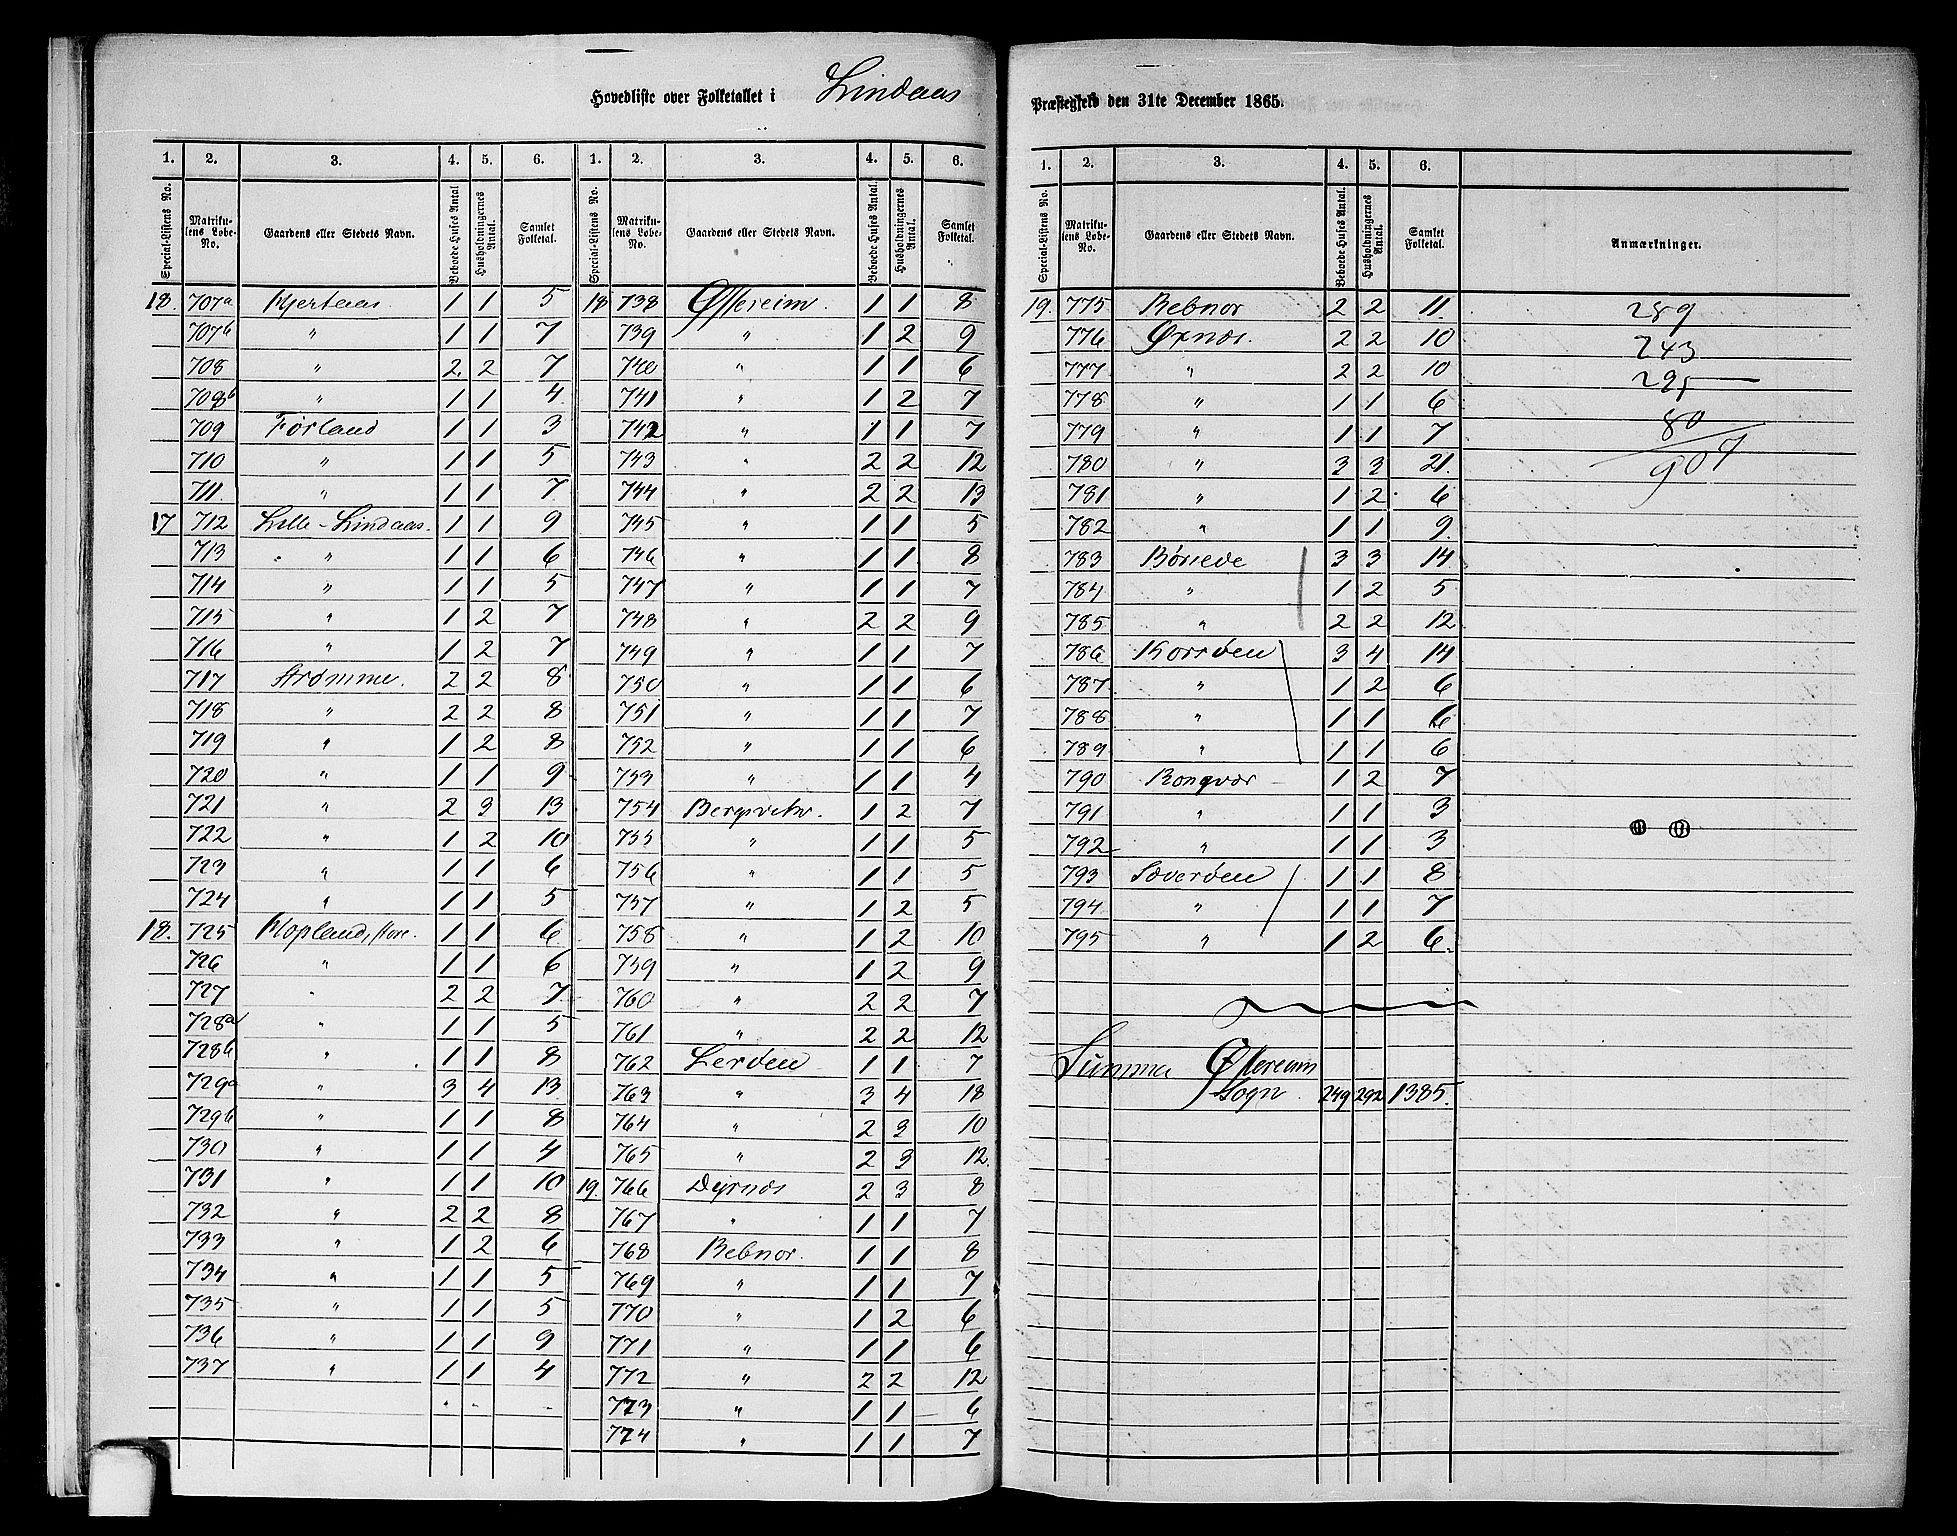 Hovedliste over Folketallet i Lindaas
Præstegjeld den 31te December 1865.
1. 2. 3. 4. 5. 6. 1. 2. 3. 4. 5. 6.
Special-Listens No. Matrikulens Løbe-No. Gaardens eller Stedets Navn. Beboede Huses Antal Husholdningernes Antal. Samlet Folketal. Special-Listens No. Matrikulens Løbe-No. Gaardens eller Stedets Navn. Beboede Huses Antal. Husholdningernes Antal. Samlet Folketal.
18. 707a Hjertaas 1 1 5
707b " 1 1 7
708 " 2 2 7
708b " 1 1 4
709 Førland 1 1 3
710 " 1 1 5
711 " 1 1 7
17 712 Lille-Lindaas. 1 1 9
713 " 1 1 6
714 " 1 1 5
715 " 1 2 7
716 " 1 2 7
717 Strømme. 2 2 8
718 " 2 2 8
719 " 1 2 8
720 " 1 1 9
721 " 2 3 13
722 " 1 2 10
723 " 1 1 6
724 " 1 1 5
18. 725 Hopland, store. 1 1 6
726 " 1 1 6
727 " 2 2 7
728a " 1 1 5
728b " 1 1 8
729a " 3 4 13
729b " 1 1 8
730 " 1 1 4
731 " 1 1 10
732 " 2 2 8
733 " 1 2 6
734 " 1 1 5
735 " 1 1 5
736 " 1 1 9
737 " 1 1 4
18 738 Østereim. 1 1 8
739 " 1 2 9
740 " 1 1 6
741 " 1 2 7
742 " 1 1 7
743 " 2 2 12
744 " 2 2 13
745 " 1 1 5
746 " 1 1 8
747 " 1 1 7
748 " 2 2 9
749 " 1 1 7
750 " 1 1 6
751 " 1 1 7
752 " 1 1 6
753 " 1 1 4
754 Bergsvik. 1 2 7
755 " 1 1 5
756 " 1 1 5
757 " 1 2 5
758 " 1 2 10
759 " 1 2 9
760 " 2 2 7
761 " 2 2 12
762 Lerøen 1 1 7
763 " 3 4 18
764 " 2 3 10
765 " 2 3 12.
19. 766 Dyrnæs 2 3 8
767 " 1 1 7
768 Rebnor. 1 1 8
769 " 1 1 7
770 " 1 2 6
771 " 1 1 6
772 " 2 2 12
773 " 1 1 6
774 " 1 1 7
1. 2. 3. 4. 5. 6.
Special-Listens No. Matrikulens Løbe-No. Gaardens eller Stedets Navn. Beboede Huses Antal. Husholdningernes Antal. Samlet Folketal. Anmærkninger.
19. 775 Rebnor 2 2 11. 289
776 Øxnæs. 2 2 10 243
777 " 2 2 10 295
778 " 1 1 6 80
779 " 1 1 7 907
780 " 3 3 21.
781 " 1 2 6
782 " 1 1 9.
783 Børilde 3 3 14
784 " 1 2 5
785 " 2 2 12
786 Korsøen 3 4 14
787 " 1 2 6
788 " 1 1 6
789 " 1 1 6
790 Rongvær 1 2 7
791 " 1 1 3
792 " 1 1 3
793 Sæverøen 1 1 8
794 " 1 1 7
795 " 1 2 6.
Summa Østereim
Sogn 249 292 1385.